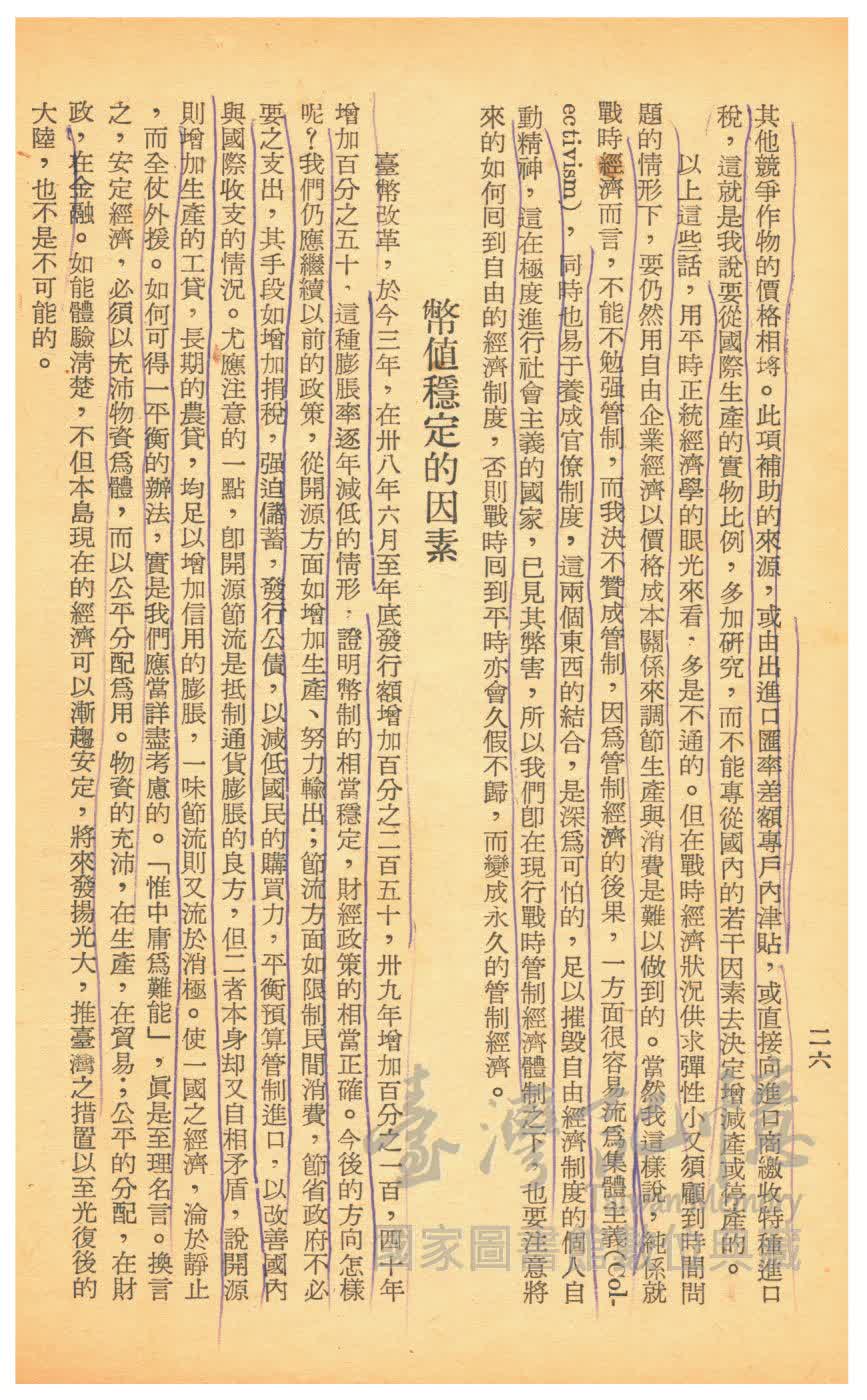 二六
其他競爭作物的價格相埓。此項補助的來源，或由出進口匯率差額專戶內津貼，或直接向進口商繳收特種進口
稅，這就是我說要從國際生產的實物比例，多加研究，而不能專從國內的若干因素去決定增減產或停產的。
以上這些話，用平時正統經濟學的眼光來看，多是不通的。但在戰時經濟狀況供求彈性小又須顧到時間問
題的情形下，要仍然用自由企業經濟以價格成本關係來調節生產與消費是難以做到的。當然我這樣說，純係就
戰時經濟而言，不能不勉强管制，而我決不贊成管制，因爲管制經濟的後果，一方面很容易流爲集體主義(Coll-
ectivism)，同時也易于養成官僚制度，這兩個東西的結合，是深爲可怕的，足以摧毀自由經濟制度的個人自
動精神，這在極度進行社會主義的國家，已見其弊害，所以我們卽在現行戰時管制經濟體制之下，也要注意將
來的如何囘到自由的經濟制度，否則戰時囘到平時亦會久假不歸，而變成永久的管制經濟。
幣值穩定的因素
臺幣改革，於今三年，在卅八年六月至年底發行額增加百分之二百五十，卅九年增加百分之一百，四十年
增加百分之五十，這種膨脹率逐年減低的情形，證明幣制的相當穩定，財經政策的相當正確。今後的方向怎樣
呢？我們仍應繼續以前的政策，從開源方面如增加生產、努力輸出；節流方面如限制民間消費，節省政府不必
要之支出，其手段如增加捐稅，强迫儲蓄，發行公債，以減低國民的購買力，平衡預算管制進口，以改善國內
與國際收支的情況。尤應注意的一點，卽開源節流是抵制通貨膨脹的良方，但二者本身却又自相矛盾，說開源
則增加生產的工貸，長期的農貸，均足以增加信用的膨脹，一味節流則又流於消極。使一國之經濟，淪於靜止
，而全仗外援。如何可得一平衡的辦法，實是我們應當詳盡考慮的。「惟中庸爲難能」，眞是至理名言。換言
之，安定經濟，必須以充沛物資爲體，而以公平分配爲用。物資的充沛，在生產，在貿易；公平的分配，在財
政，在金融。如能體驗淸楚，不但本島現在的經濟可以漸趨安定，將來發揚光大，推臺灣之措置以至光復後的
大陸，也不是不可能的。
臺灣記憶
Taiwan Memory
國家圖書館數位典藏